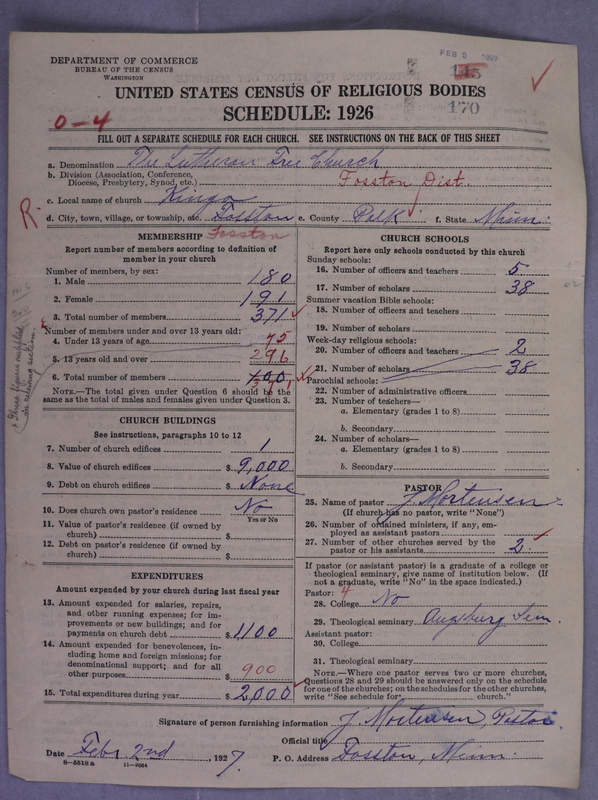 DEPARTMENT OF COMMERCE
BUREAU OF THE CENSUS
WASHINGTON
FEB 5 1927
170
UNITED STATES CENSUS OF RELIGIOUS BODIES
SCHEDULE: 1926
0-4
FILL OUT A SEPARATE SCHEDULE FOR EACH CHURCH. SEE INSTRUCTIONS ON THE BACK OF THIS SHEET
a. Denomination The Lutheran Free Church
b. Division (Association, Conference, Diocese, Presbytery, Synod, etc.) Fosston Dist.
c. Local name of church Kingo
R.
d. City, town, village, or township, etc. Fosston e. County Polk f. State Minn.
MEMBERSHIP Fosston
Report number of members according to definition of
member in your church
Number of members, by sex:
1. Male 180
2. Female 191
3. Total number of members 371
Number of members under and over 13 years old:
4. Under 13 years of age 75
5. 13 years old and over 296
6. Total number of members
NOTE.—The total given under Question 6 should be the
same as the total of males and females given under Question 3.
CHURCH BUILDINGS
See instructions, paragraphs 10 to 12
7. Number of church edifices 1
8. Value of church edifices $ 9,000
9. Debt on church edifices $ None
10. Does church own pastor's residence No
Yes or No
11. Value of pastor's residence (if owned by
church) $
12. Debt on pastor's residence (if owned by
church) $
EXPENDITURES
Amount expended by your church during last fiscal year
13. Amount expended for salaries, repairs,
and other running expenses; for im-
provements or new buildings; and for
payments on church debt $ 1100
14. Amount expended for benevolences, in-
cluding home and foreign missions; for
denominational support; and for all
other purposes $ 900
15. Total expenditures during year $ 2,000
CHURCH SCHOOLS
Report here only schools conducted by this church
Sunday schools:
16. Number of officers and teachers 5
17. Number of scholars 38
Summer vacation Bible schools:
18. Number of officers and teachers
19. Number of scholars
Week-day religious schools:
20. Number of officers and teachers 2
21. Number of scholars 38
Parochial schools:
22. Number of administrative officers
23. Number of teachers—
a. Elementary (grades 1 to 8)
b. Secondary
24. Number of scholars—
a. Elementary (grades 1 to 8)
b. Secondary
PASTOR
25. Name of pastor J. Mortensen
(If church has no pastor, write "None")
26. Number of ordained ministers, if any, em-
ployed as assistant pastors
27. Number of other churches served by the
pastor or his assistants 2
If pastor (or assistant pastor) is a graduate of a college or
theological seminary, give name of institution below. (If
not a graduate, write "No" in the space indicated.)
Pastor: 4
28. College No
29. Theological seminary Augsburg Sem.
Assistant pastor:
30. College
31. Theological seminary
NOTE.—Where one pastor serves two or more churches,
Questions 28 and 29 should be answered only on the schedule
for one of the churches; on the schedules for the other churches,
write "See schedule for church."
Signature of person furnishing information J. Mortensen, Pastor
Official title
Date Febr 2nd, 1927. P. O. Address Fosston, Minn.
8-5518 a 11-9084